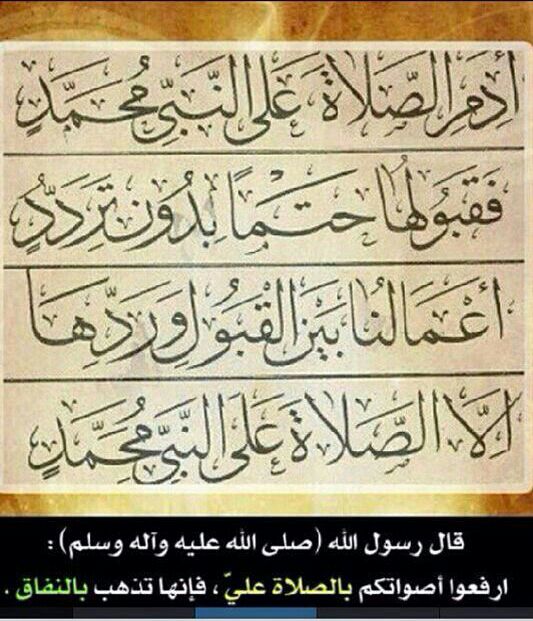 أَدِمِ الصَّلَاةَ عَلَى النَّبِيِّ مُحَمَّدٍ
فَقَبُولُهَا حَتْمًا بِدُونِ تَرَدُّدٍ
أَعْمَالُنَا بَيْنَ الْقَبُولِ وَرَدِّهَا
إِلَّا الصَّلَاةَ عَلَى النَّبِيِّ مُحَمَّدٍ
قال رسول الله (صلى الله عليه وآله وسلم) :
ارفعوا أصواتكم بالصلاة عليّ ، فإنها تذهب بالنفاق .